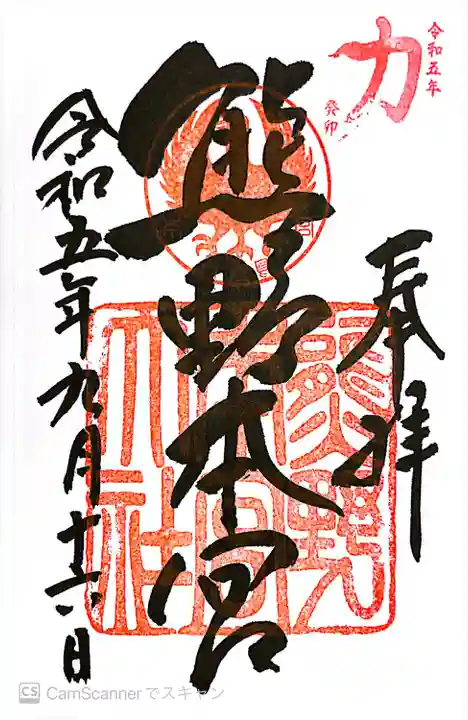 令和五年
力
癸卯
奉拝
熊野本宮
熊野
本宮
大社
令和五年九月十六日
CS CamScannerでスキャン